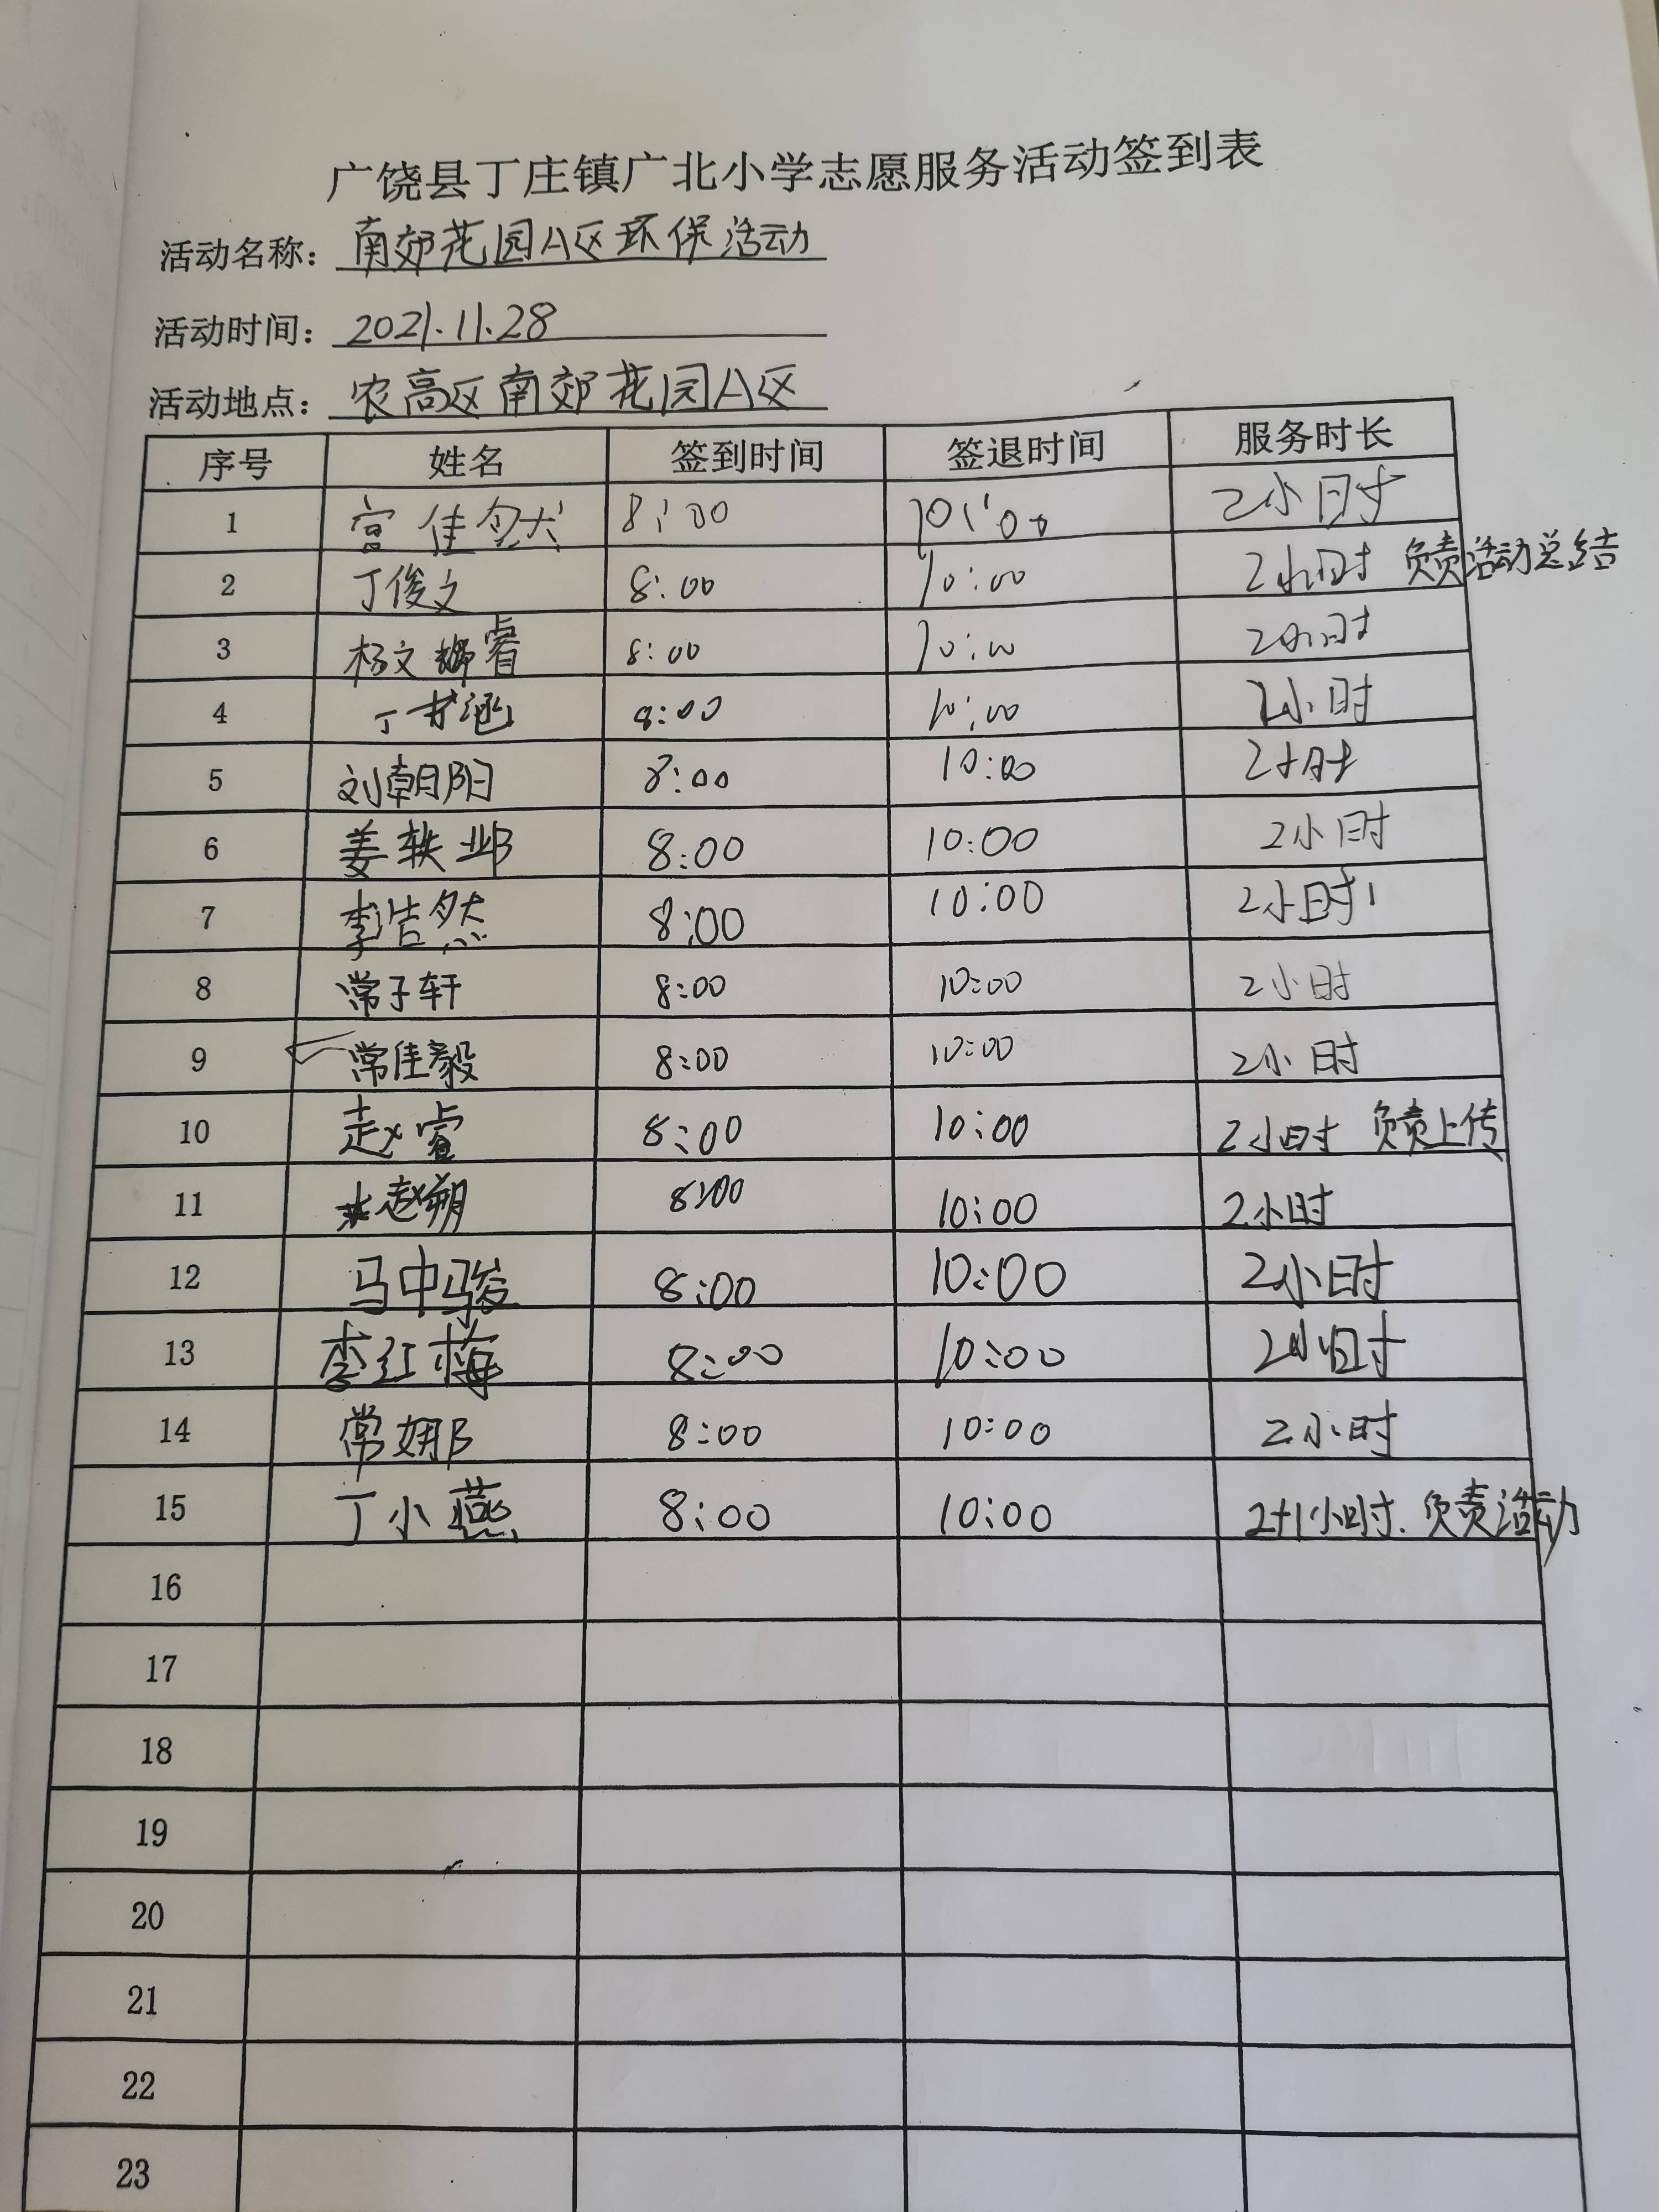 广饶县丁庄镇广北小学志愿服务活动签到表
活动名称：南郊花园A区环保活动
活动时间：2021.11.28
活动地点：农高区南郊花园A区
序号 姓名 签到时间 签退时间 服务时长
1 宫佳 8:00 10:00 2小时
2 丁俊文 8:00 10:00 2小时 负责活动总结
3 杨文睿 8:00 10:00 2小时
4 丁涵 8:00 10:00 2小时
5 刘朝阳 8:00 10:00 2小时
6 姜轶邺 8:00 10:00 2小时
7 李浩然 8:00 10:00 2小时
8 常子轩 8:00 10:00 2小时
9 常佳毅 8:00 10:00 2小时
10 赵睿 8:00 10:00 2小时 负责上传
11 赵朔 8:00 10:00 2小时
12 马中骏 8:00 10:00 2小时
13 李红梅 8:00 10:00 2小时
14 常娜 8:00 10:00 2小时
15 丁小燕 8:00 10:00 2+1小时.负责活动
16
17
18
19
20
21
22
23